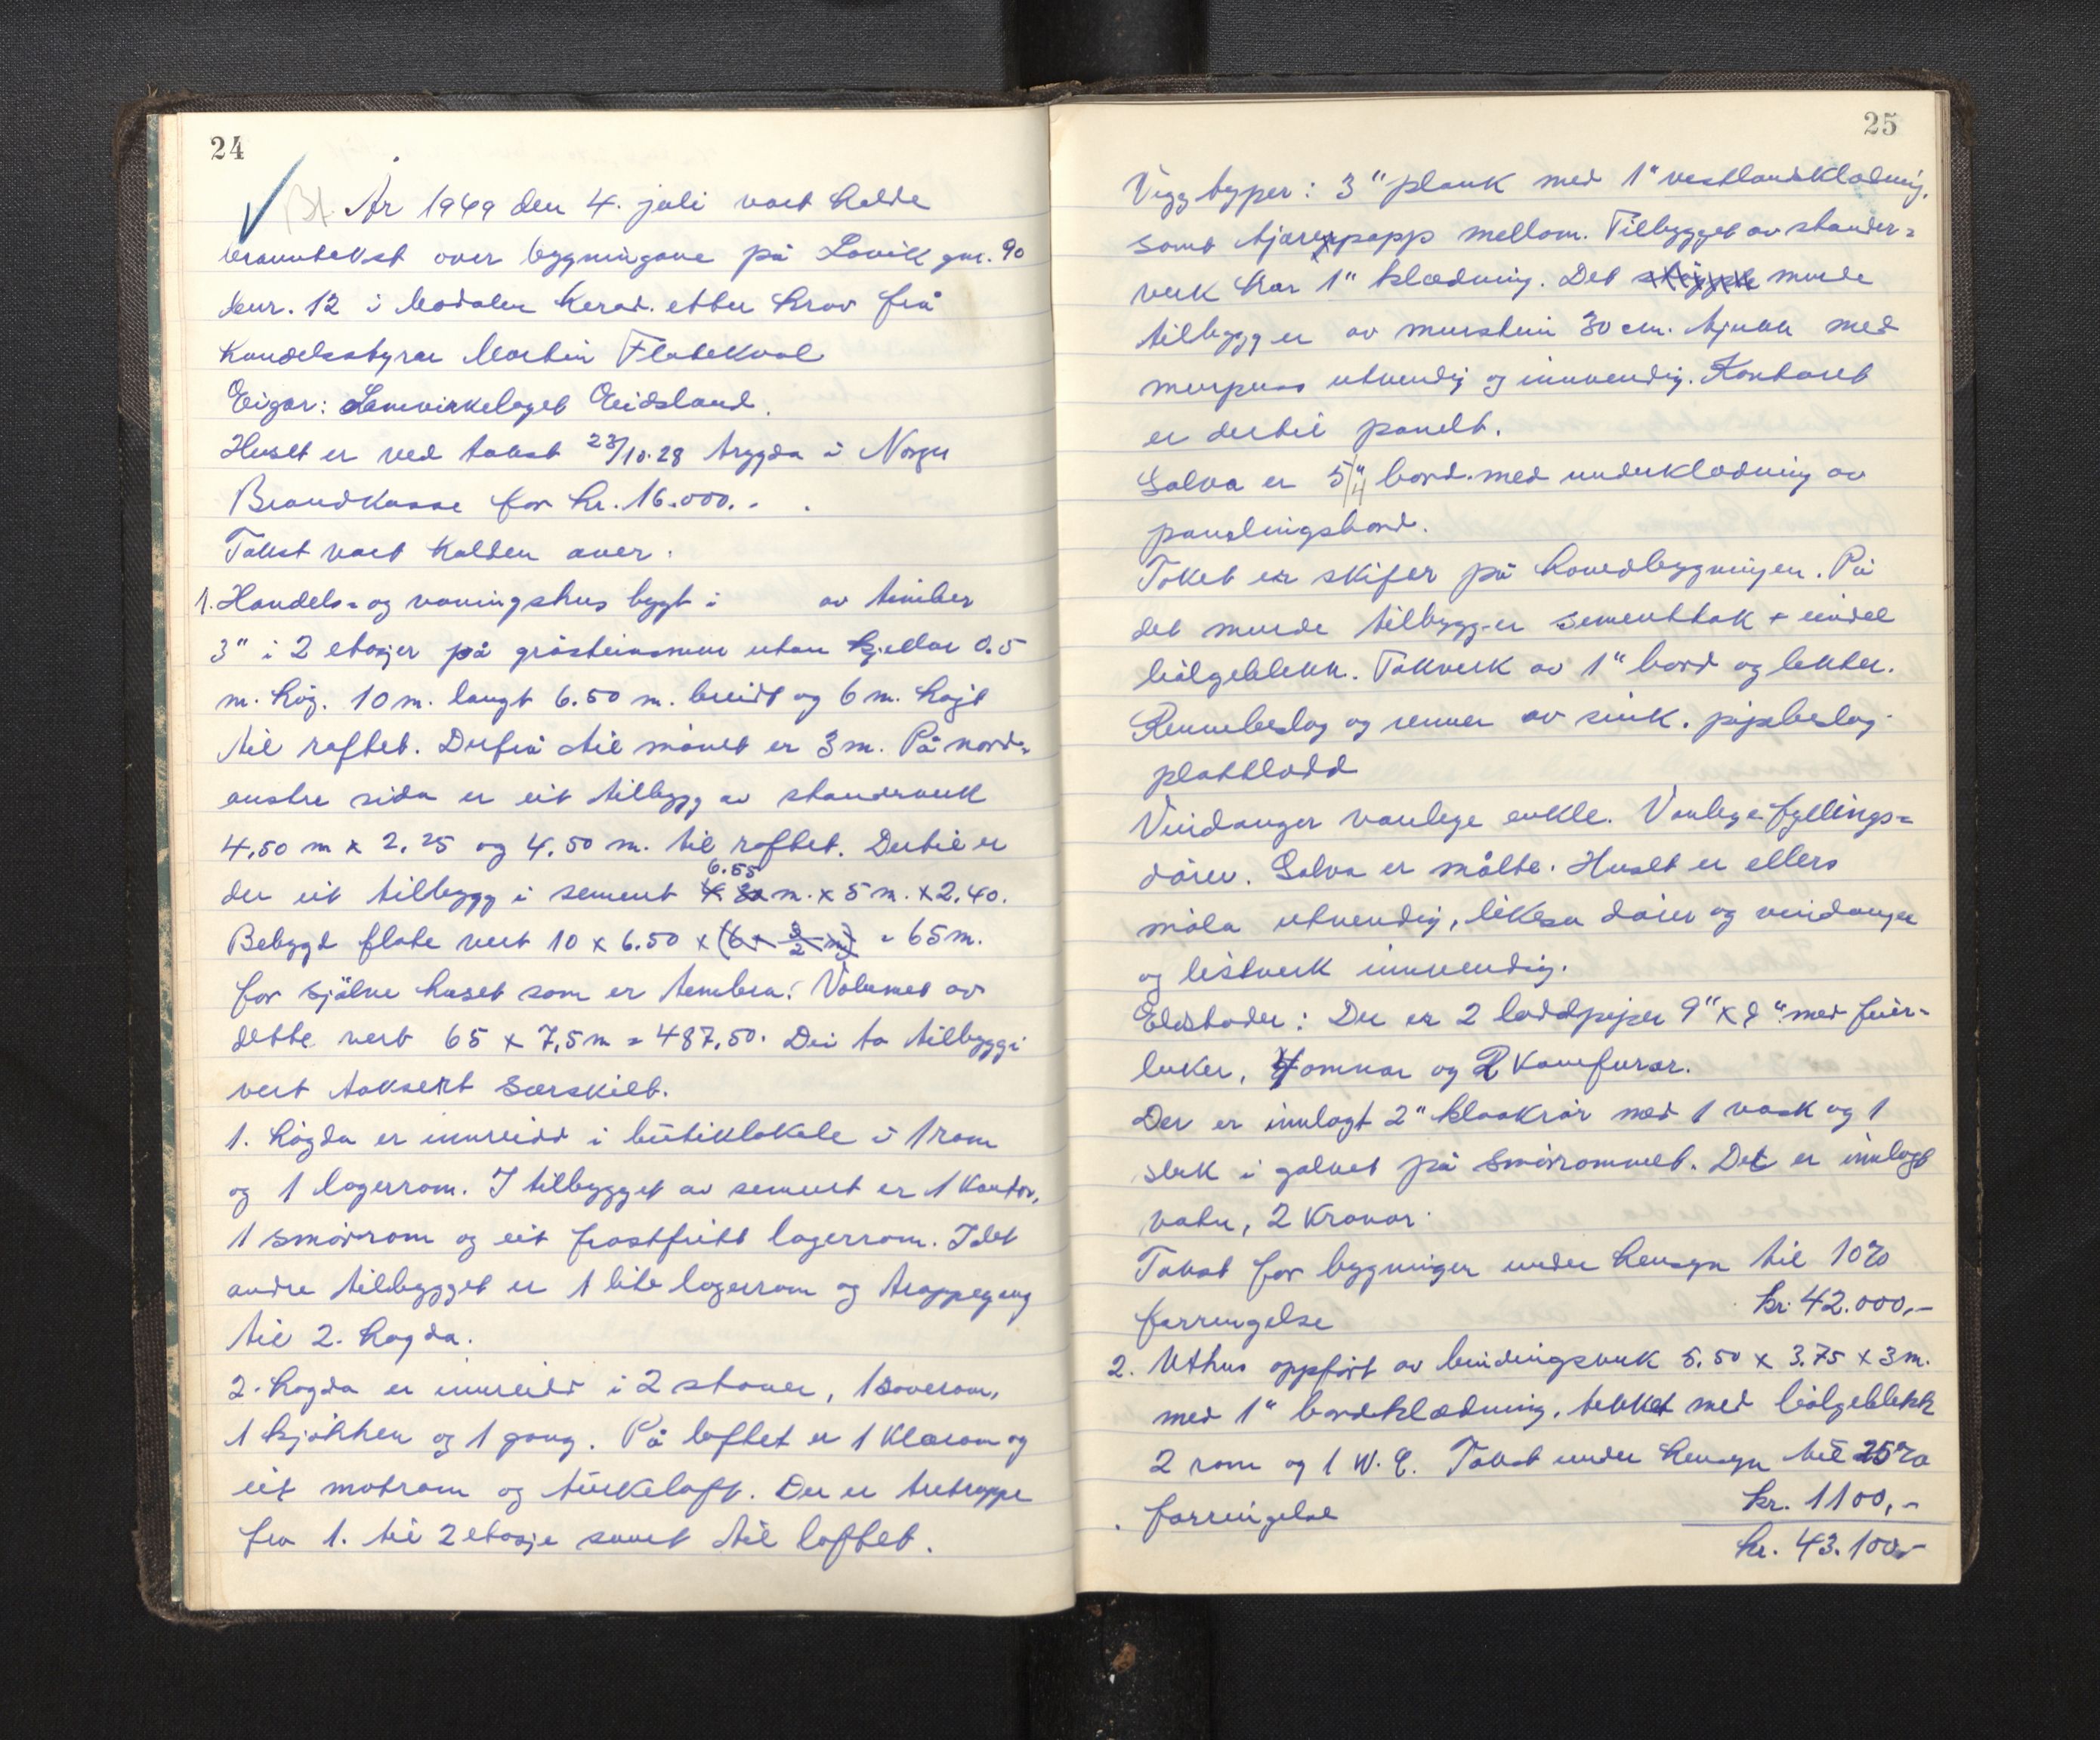 24
År 1949 den 4. juli vart halde
branntakst over bygningane på Lavik gnr. 90
bnr. 12 i Modalen herad. etter krav frå
handelsstyrar Martin Flatekval
Eigar: Samvirkelaget Eidsland.
Huset er ved takst 23/10.28 trygda i Norges
Brandkasse for kr. 16.000.-
Takst vart halden over:
1. Handels- og vaningshus bygt i av timber
3" i 2 etasjer på gråsteinsmur utan kjellar 0.5
m. høg. 10 m. langt 6.50 m. breidt og 6 m. høgt
til raftet. Derfrå til mønet er 3 m. På nord-
austre sida er eit tilbygg av standerverk
4,50 m x 2,25 og 4,50 m. til raftet. Dertil er
der eit tilbygg i sement 6.55 m. x 5 m. x 2,40.
Bebygd flate vert 10 x 6.50 x (6 + 3/2 m) = 65 m.
for sjølve huset som er tembra. Volumet av
dette vert 65 x 7,5 m = 487,50. Dei to tilbyggi
vert taksert særskilt.
1. høgda er innreidd i butiklokale i 1 rom
og 1 lagerrom. I tilbygget av sement er 1 kontor,
1 smørrom og eit frostfritt lagerrom. I det
andre tilbygget er 1 lite lagerrom og trappegang
til 2. høgda.
2. høgda er innreidd i 2 stover, 1 soverom,
1 kjøkken og 1 gang. På loftet er 1 klærom og
eit matrom og tørkeloft. Der er tretrappe
fra 1. til 2 etasje samt til loftet.
25
Veggtyper: 3" plank med 1" vestlandskledning.
samt tjærepapp mellom. Tilbygget av stander-
verk har 1" klædning. Det murde
tilbygg er av murstein 30 cm. tjukk med
murpuss utvendig og innvendig. Kontoret
er dertil panelt.
Golva er 5/4" bord. med underkledning av
panelingsbord.
Taket er skifer på hovedbygningen. På
det murde tilbygg er sementtak + eindel
bølgeblekk. Takverk av 1" bord og lekter.
Rennebeslag og renner av sink. pipebeslag
platt lodd
Vindauger vanlege enkle. Vanlege fyllings-
dører. Golva er målte. Huset er ellers
måla utvendig, likesa dører og vindauger
og listverk innvendig.
Eldstader: Der er 2 loddpiper 9" x 9" med feier-
luker, 4 omnar og 2 komfurar.
Der er innlagt 2" kloakrør med 1 vask og 1
sluk i golvet på smørrommet. Det er innlagt
vatn, 2 kranar.
Takst for bygningen under hensyn til 10%
forringelse kr. 42.000,-
2. Uthus oppført av bindingsverk 5.50 x 3.75 x 3 m.
med 1" bordklædning, tekket med bølgeblekk
2 rom og 1 W.C. Takst under hensyn til 25%
forringelse kr. 1100,-
kr. 43.100,-